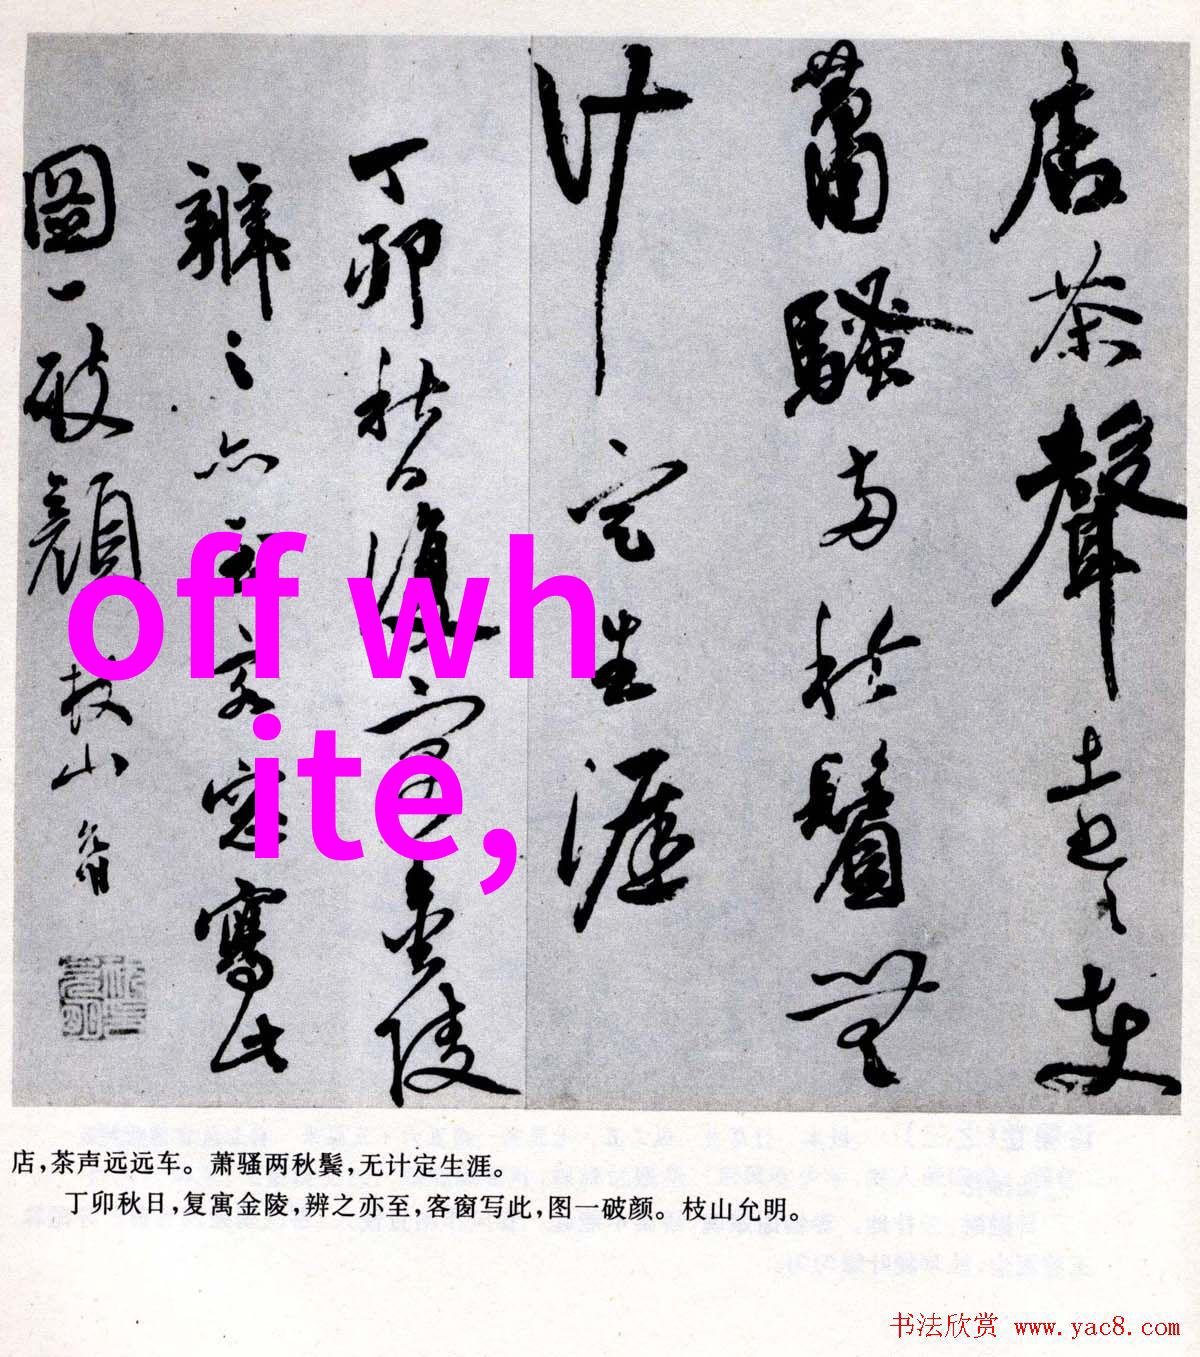 店茶聲遠々車
蕭騷両秋鬢無
計定生涯
丁卯秋日復寓金陵
辨之亦至客窓寫此
圖一破顏 枝山 允明
off wh
ite,
店,茶声远远车。萧骚两秋鬓,无计定生涯。
丁卯秋日,复寓金陵,辨之亦至,客窗写此,图一破颜。枝山允明。
书法欣赏 www.yac8.com